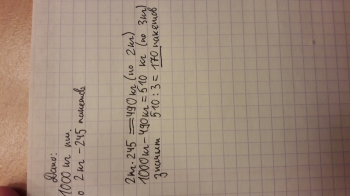 Дано:
1000 кг
о 2 кг - 245 пакетов
2кг·245 = 490 кг (по 2кг)
1000кг-490кг=510 кг (по 3кг)
значит 510:3=170 пакетов